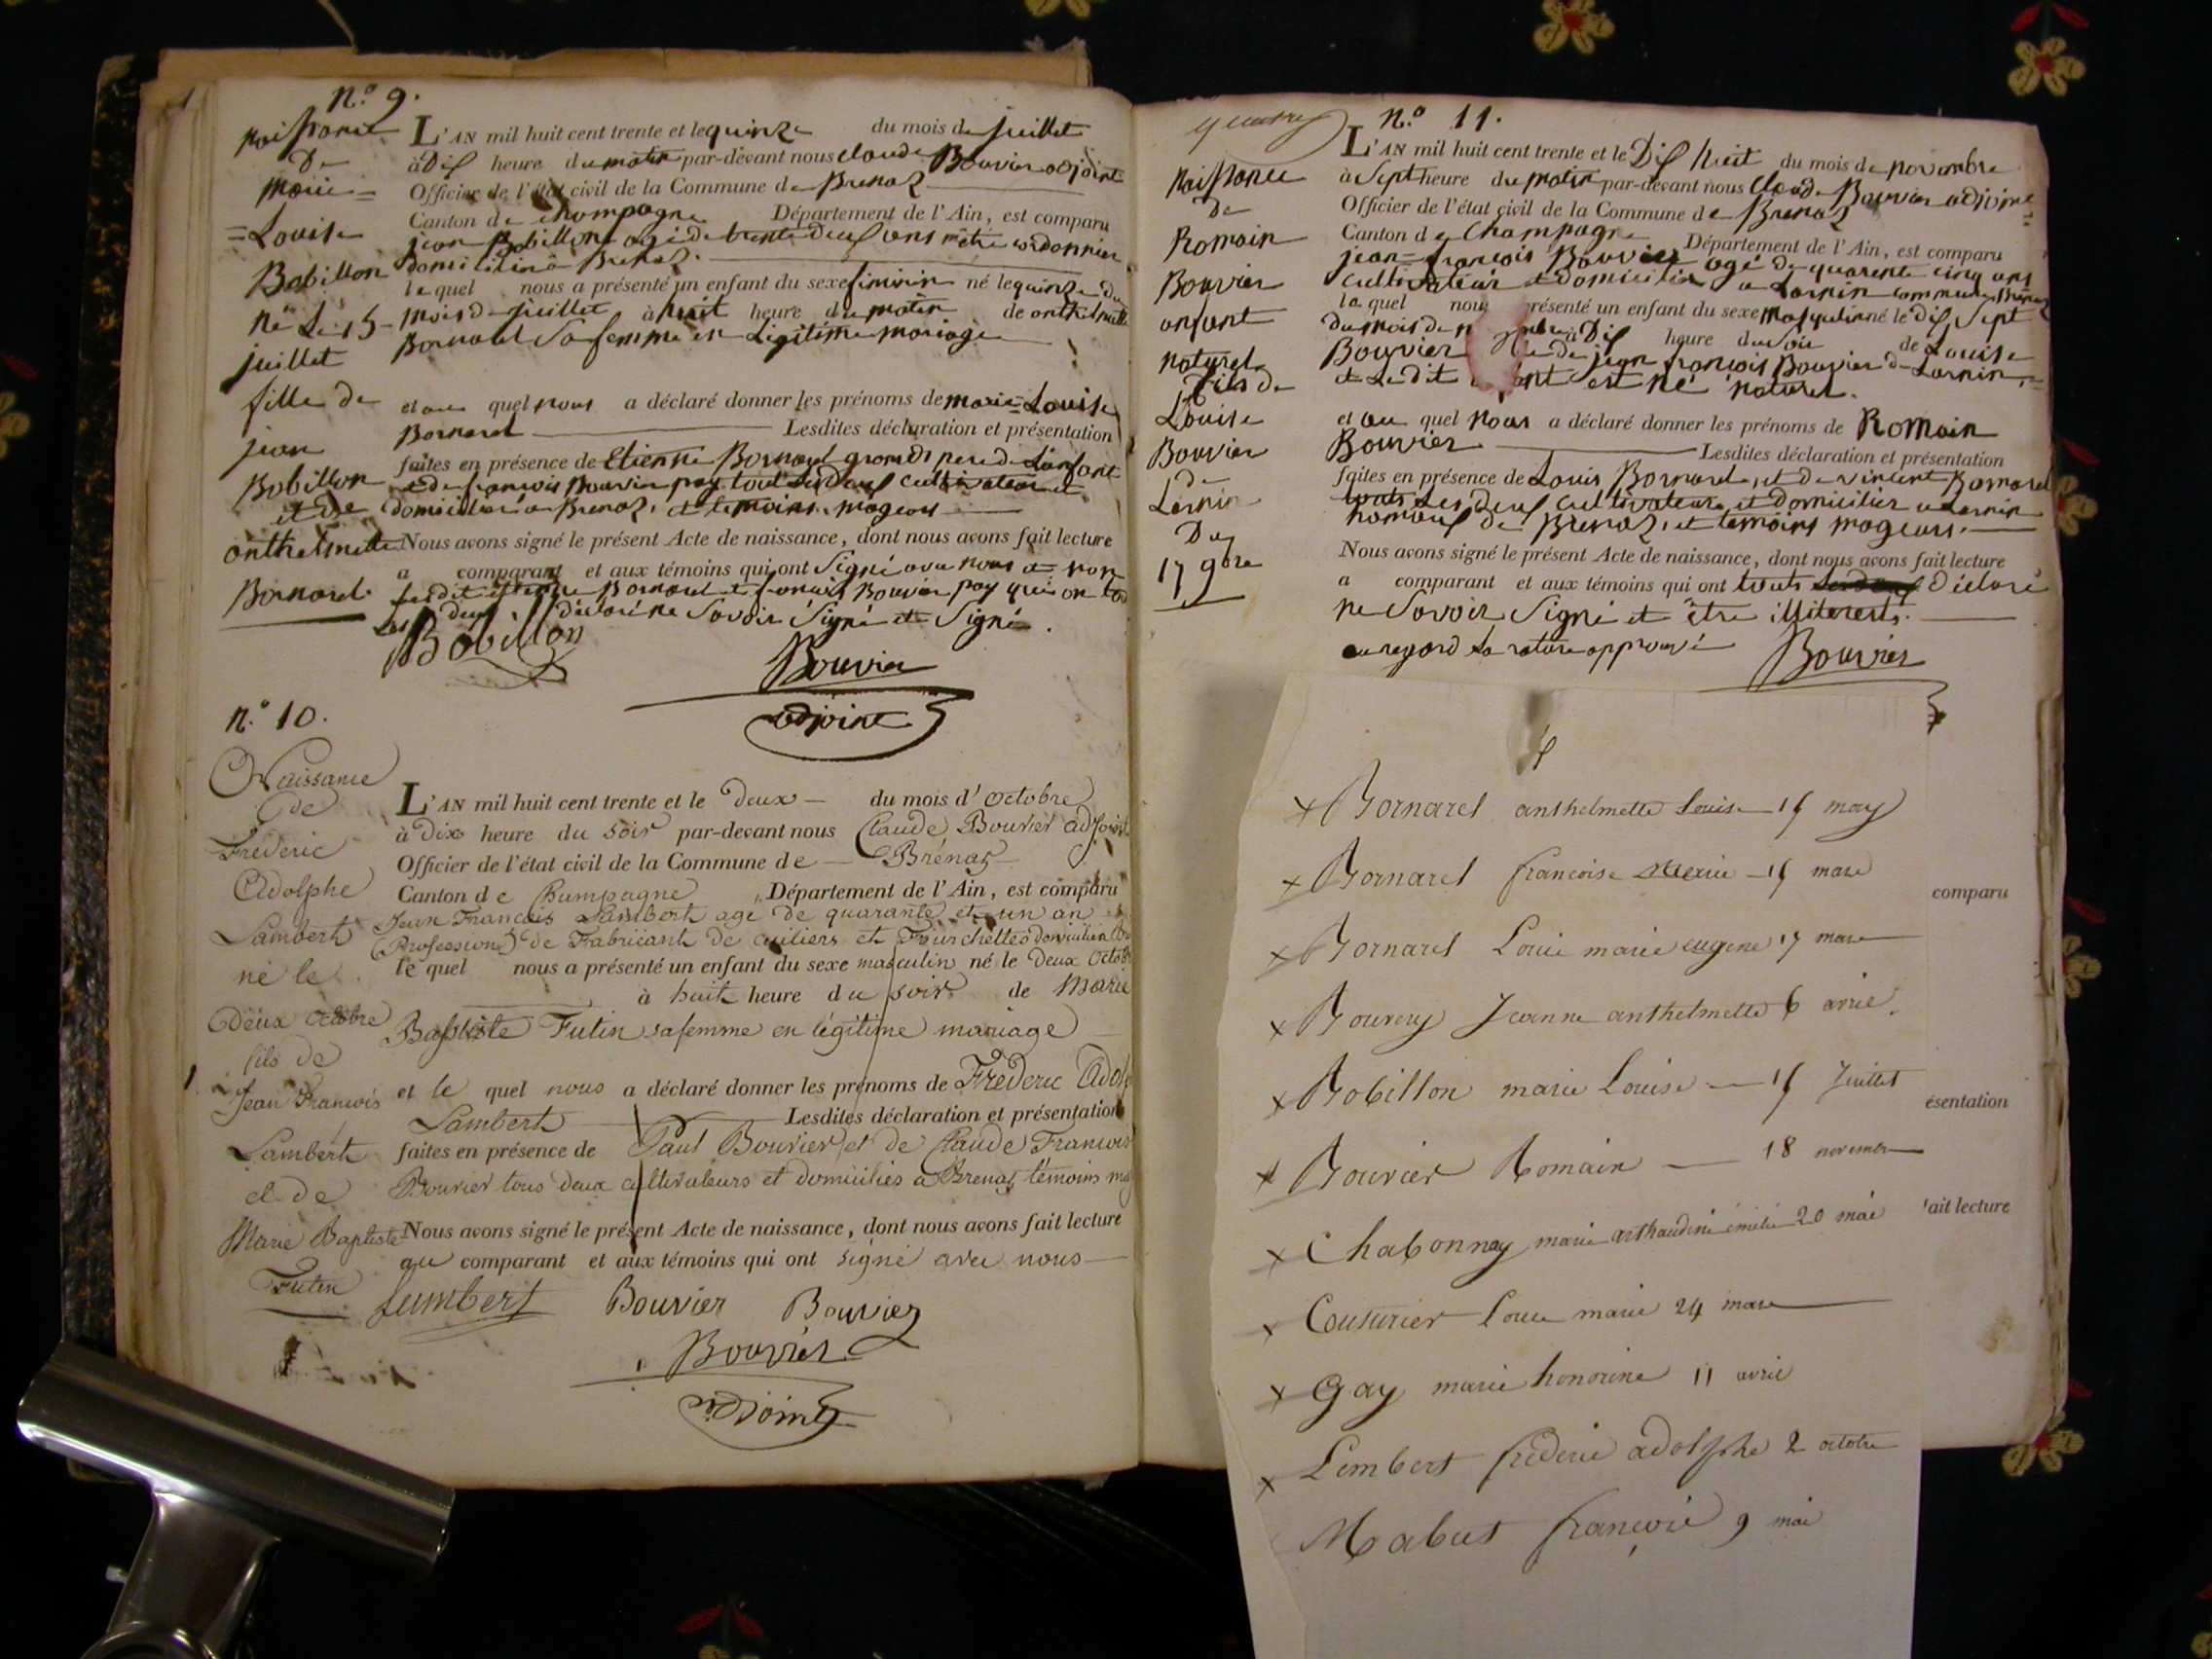 n.o 9.
naissance
De
marie =
= Louise
Bobillon
né Le 15
juillet
fille de
jean
Bobillon
et de
onthelmette
Bornarel
L'AN mil huit cent trente et le quinze du mois de juillet
à Dis heure du matin par-devant nous claude Bouvier adjoint
Officier de l'état civil de la Commune de Brenaz
Canton de Champagne Département de l'Ain, est comparu
jean Bobillon agé de trente deus ans métié cordonnier
domicilié à Brenaz.
le quel nous a présenté un enfant du sexe féminin né le quinze du
mois de juillet à huit heure du matin de onthelmette
Bornarel Sa femme en Légitime mariage
et au quel nous a déclaré donner les prénoms de marie = Louise
Bornarel Lesdites déclaration et présentation
faites en présence de Etienne Bornarel grand pere de L'enfant
et de francois Bouvier pay tout Les deus cultivateur et
domicilié à Brenaz, et témoins mageurs
Nous avons signé le présent Acte de naissance, dont nous avons fait lecture
a comparant et aux témoins qui ont Signé avec nous a non
Les deus déclaré ne Savoir Signé et Signé.
Bobillon
Bouvier
adjoint
n.o 10.
Naissance
de
Frederic
Adolphe
Lambert
né le
Deux Octobre
fils de
Jean Francois
Lambert
et de
Marie Baptiste
Futin
L'AN mil huit cent trente et le deux du mois d'octobre
à Dix heure du soir par-devant nous Claude Bouvier adjoint
Officier de l'état civil de la Commune de Brénaz
Canton de Champagne Département de l'Ain, est comparu
Jean Francois Lambert age de quarante et un an
(Profession) de Fabricant de cuiliers et Fourchettes domicilié
le quel nous a présenté un enfant du sexe masculin né le Deux Octob
à huit heure du soir de Marie
Baptiste Futin sa femme en légitime mariage
et le quel nous a déclaré donner les prénoms de Frederic Adol
Lambert Lesdites déclaration et présentation
faites en présence de Paul Bouvier et de Claude Francois
Bouvier tous deux cultivateurs et domiciliés a Brenaz témoins maj
Nous avons signé le présent Acte de naissance, dont nous avons fait lecture
au comparant et aux témoins qui ont signé avec nous
Lambert Bouvier Bouvier
Bouvier
adjoint
n.o 11.
Naissance
de
Romain
Bouvier
enfant
naturel
fils de
Louise
Bouvier
de
Lornin
Du
17 9bre
L'AN mil huit cent trente et le Dis huit du mois de novembre
à Sept heure du matin par-devant nous Claude Bouvier adjoint
Officier de l'état civil de la Commune de Brenaz
Canton de Champagne Département de l'Ain, est comparu
jean = francois Bouvier agé de quarente cinq ans
cultivateur et domicilié a Lornin commune Brenaz
le quel nous présenté un enfant du sexe masqulin né le dis Sept
du mois de à Dis heure du soir de Louise
Bouvier de jean francois Bouvier de Lornin
et Le dit est né naturel.
et au quel nous a déclaré donner les prénoms de Romain
Bouvier Lesdites déclaration et présentation
faites en présence de Louis Bornarel, et de vincent Bornarel
touts Les deus cultivateurs et domicilier a Lornin
hamaus de Brenaz, et temoins mageurs.
Nous avons signé le présent Acte de naissance, dont nous avons fait lecture
a comparant et aux témoins qui ont touts déclaré
ne Savoir Signé et être illiterests.
au regard La rature approuvé Bouvier
x Bornarel anthelmette Louise 15 may
x Bornarel francoise Marie 15 mars
x Bornarel Louise marie eugene 17 mars
x Bouvery Jeanne anthelmette 6 avril
x Bobillon marie Louise 15 Juillet
x Bouvier Romain 18 novembre
x Chabonnay marie émélie 20 mai
x Couturier Louise marie 24 mars
x Gay marie honorine 11 avril
x Lembert frederic adolphe 2 octobre
Mabut francois 9 mai
comparu
ésentation
fait lecture